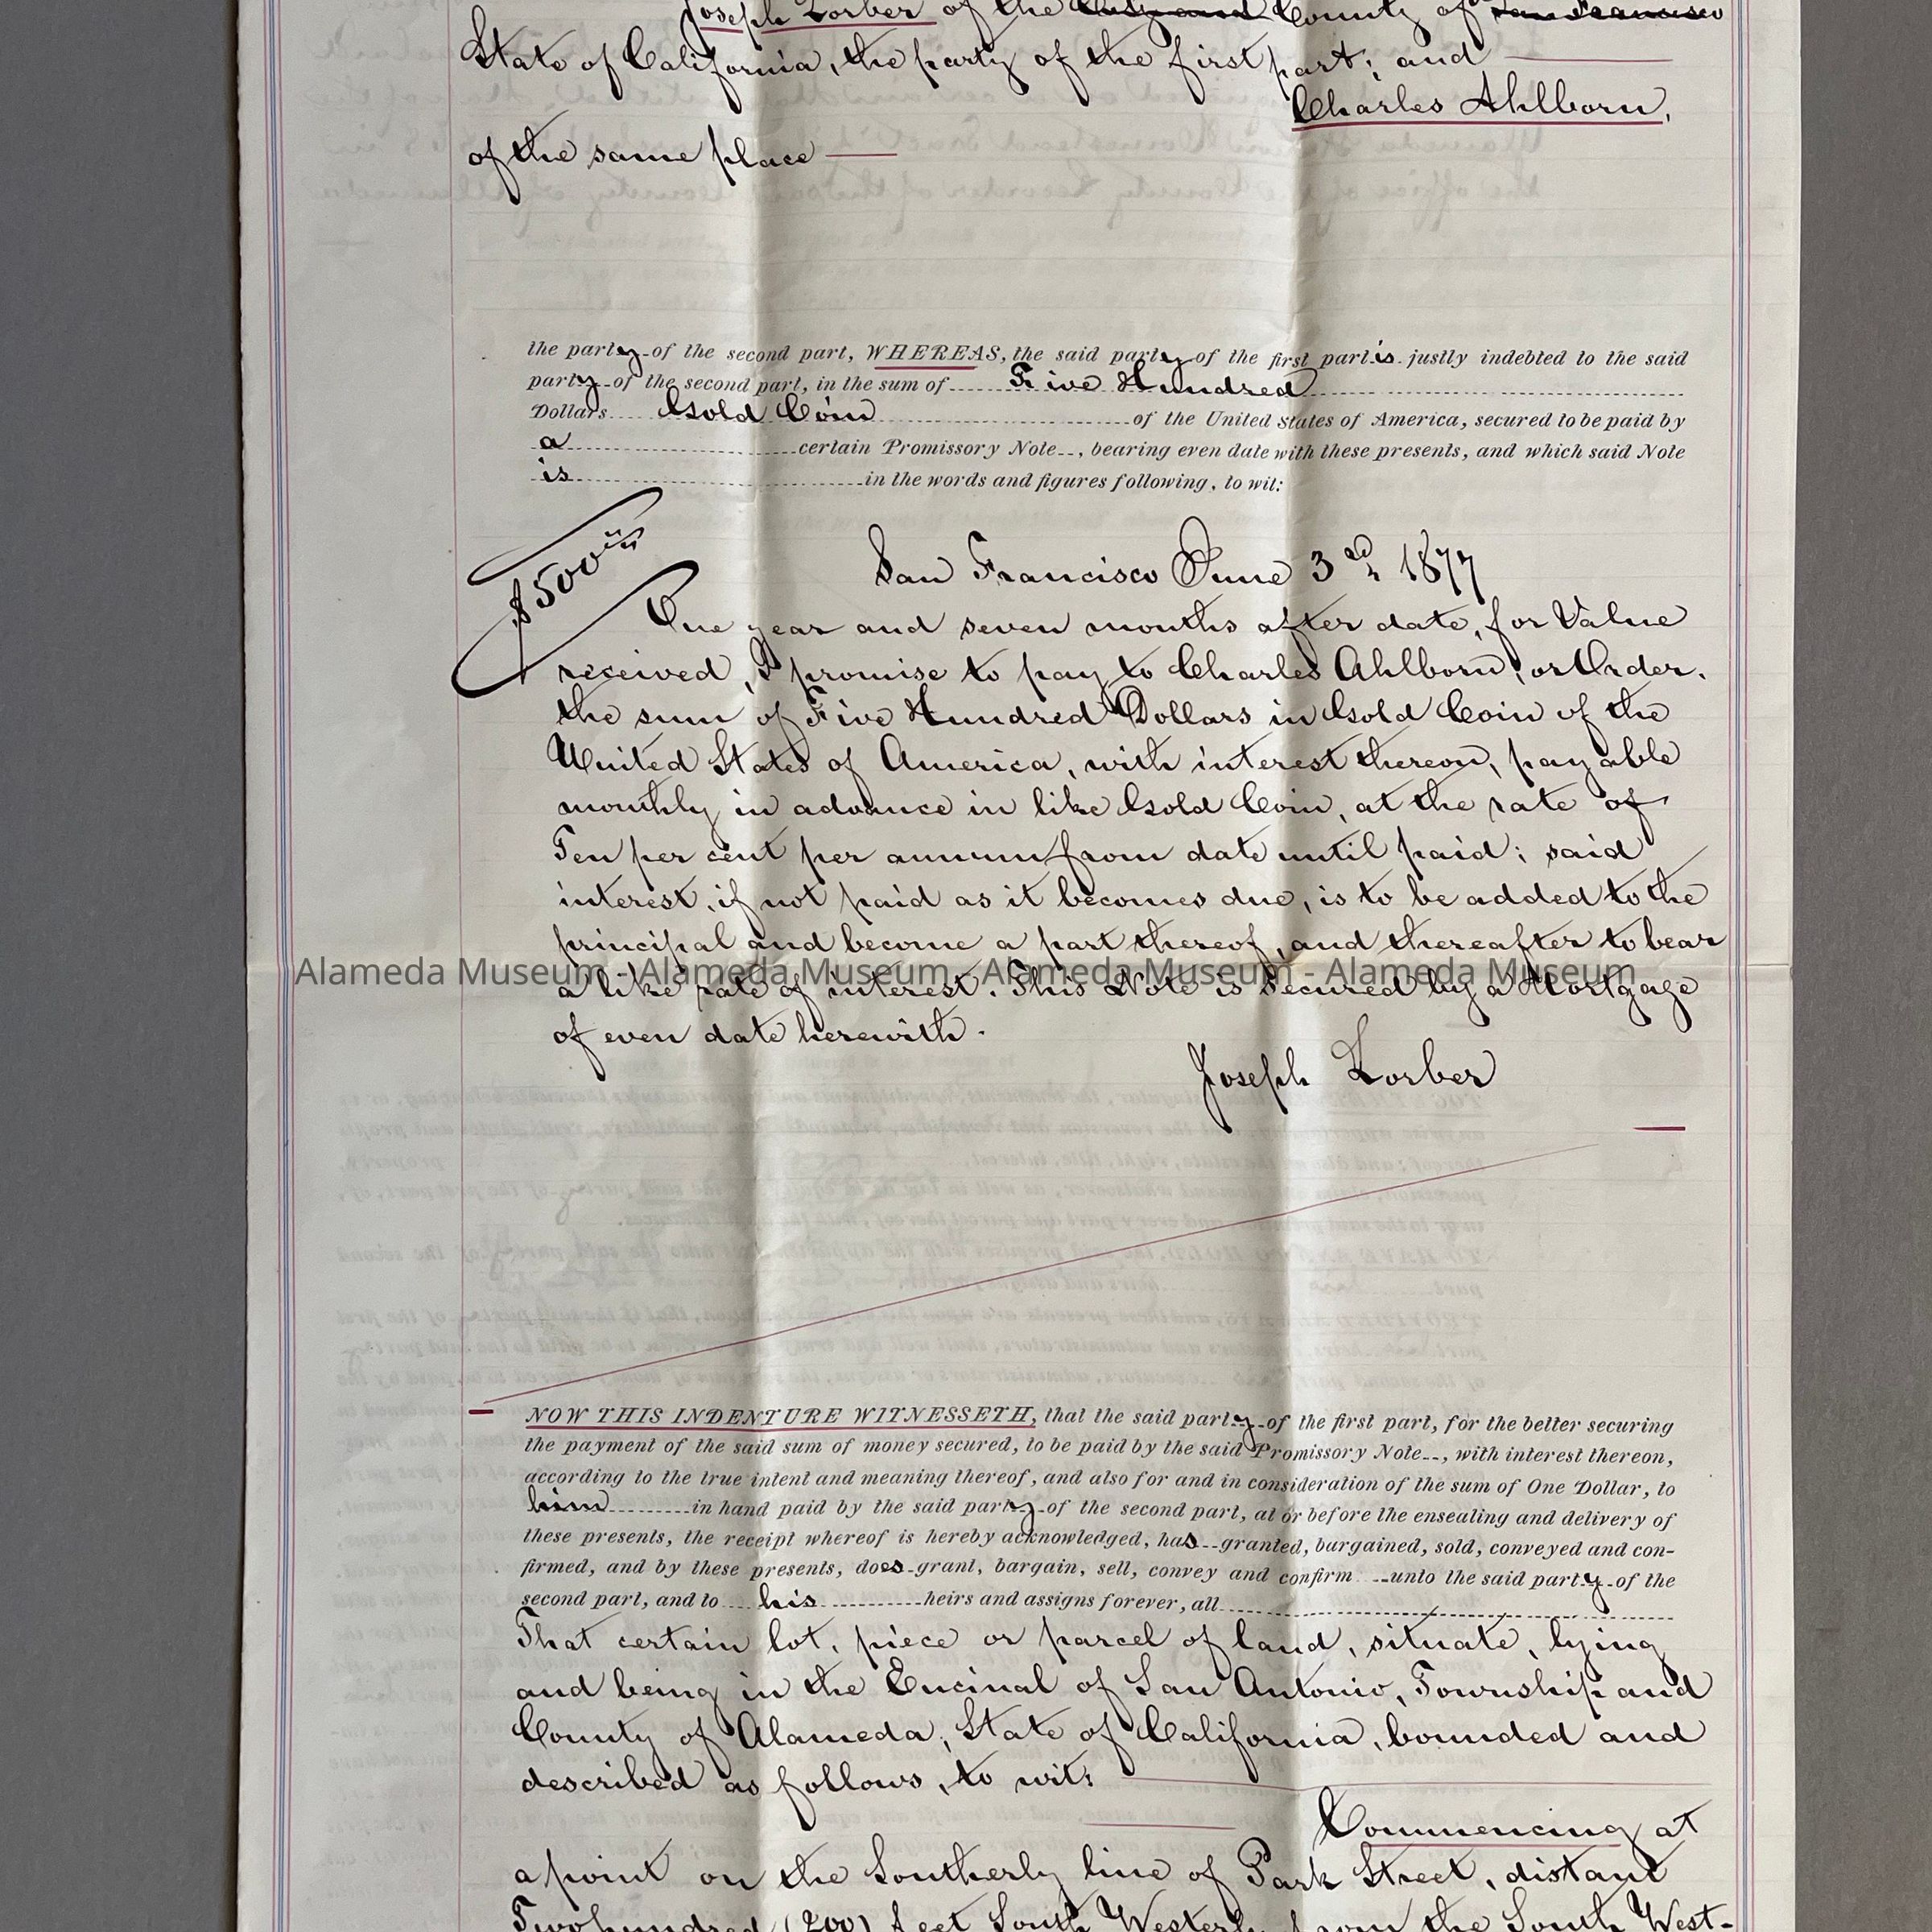 Joseph Lorber of the City and County of San Francisco
State of California, the party of the first part; and
Charles Ahlborn,
of the same place
the party of the second part, WHEREAS, the said party of the first part is justly indebted to the said
party of the second part, in the sum of Five Hundred
Dollars Gold Coin of the United States of America, secured to be paid by
a certain Promissory Note, bearing even date with these presents, and which said Note
is in the words and figures following, to wit:
$500
San Francisco June 3rd, 1877
One year and seven months after date, for Value
received, I promise to pay to Charles Ahlborn, or Order.
the sum of Five Hundred Dollars in Gold Coin of the
United States of America, with interest thereon, payable
monthly in advance in like Gold Coin, at the rate of
Ten per cent per annum from date until paid; said
interest, if not paid as it becomes due, is to be added to the
principal and become a part thereof, and thereafter to bear
Alameda Museum - Alameda Museum - Alameda Museum - Alameda Museum
a like rate of interest. This Note is Secured by a Mortgage
of even date herewith.
Joseph Lorber
NOW THIS INDENTURE WITNESSETH, that the said party of the first part, for the better securing
the payment of the said sum of money secured, to be paid by the said Promissory Note, with interest thereon,
according to the true intent and meaning thereof, and also for and in consideration of the sum of One Dollar, to
him in hand paid by the said party of the second part, at or before the ensealing and delivery of
these presents, the receipt whereof is hereby acknowledged, has granted, bargained, sold, conveyed and con-
firmed, and by these presents, does grant, bargain, sell, convey and confirm unto the said party of the
second part, and to his heirs and assigns forever, all
That certain lot, piece or parcel of land, situate, lying
and being in the Encinal of San Antonio, Township and
County of Alameda, State of California, bounded and
described as follows, to wit:
Commencing at
a point on the Southerly line of Park Street, distant
Two hundred (200) feet South Westerly from the South West-